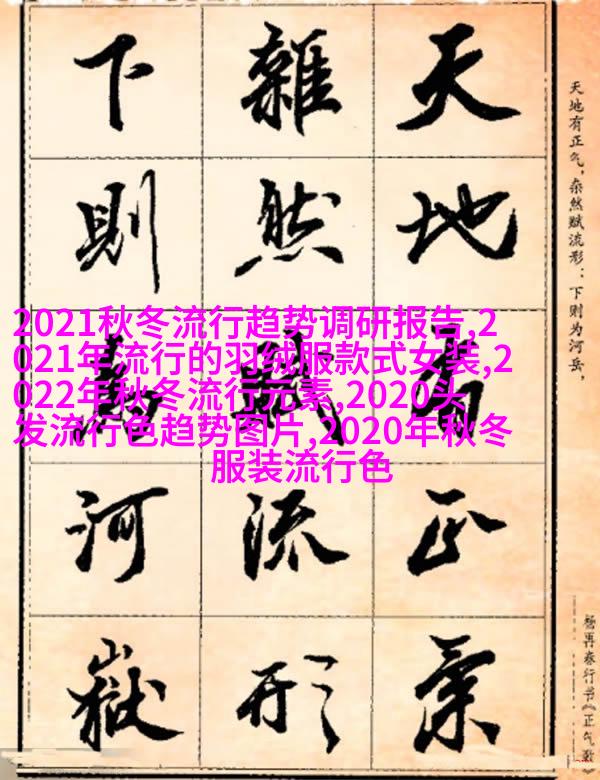 天地有正气，杂然赋流形：下则为河岳，
杨再春行书《正气歌》
天地有正氣
雜然賦流形
下則為河嶽
2021秋冬流行趋势调研报告,2
021年流行的羽绒服款式女装,2
022年秋冬流行元素,2020头
发流行色趋势图片,2020年秋冬
服装流行色